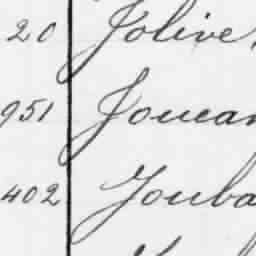 20 Jolive
951 Joucan
402 Jouba